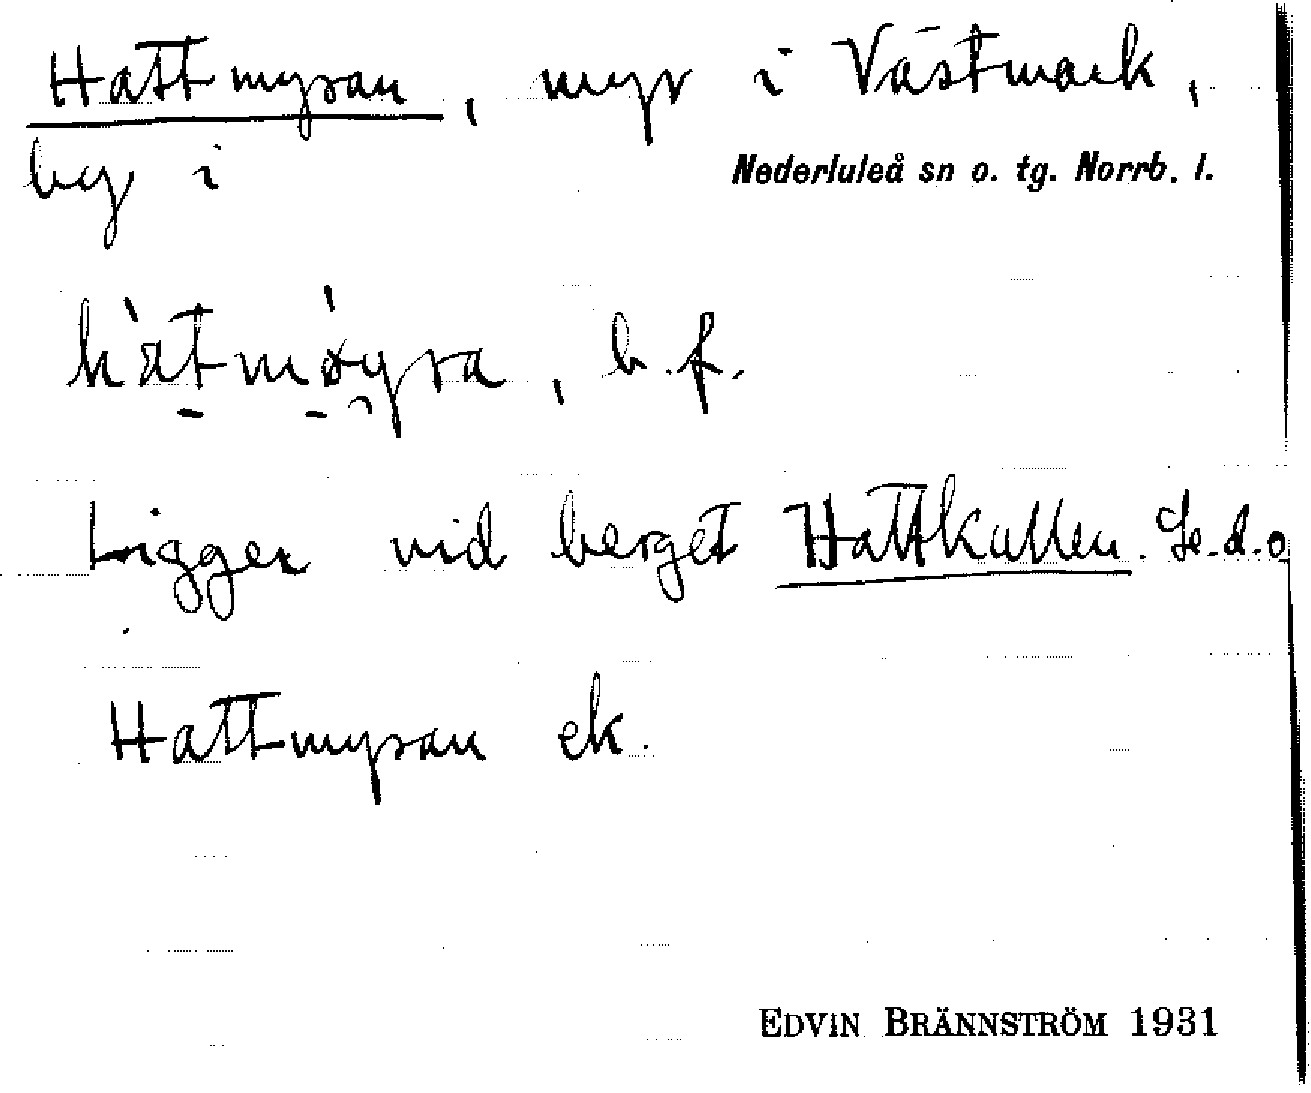 Hattmyran, myr i Västmark,
by i Nederluleå sn o. tg. Norrb. l.
hàt̠mø̠̀y̑ra, b.f.
Ligger vid berget Hattkullen. Se d.o
Hattmyran ek.
EDVIN BRÄNNSTRÖM 1931